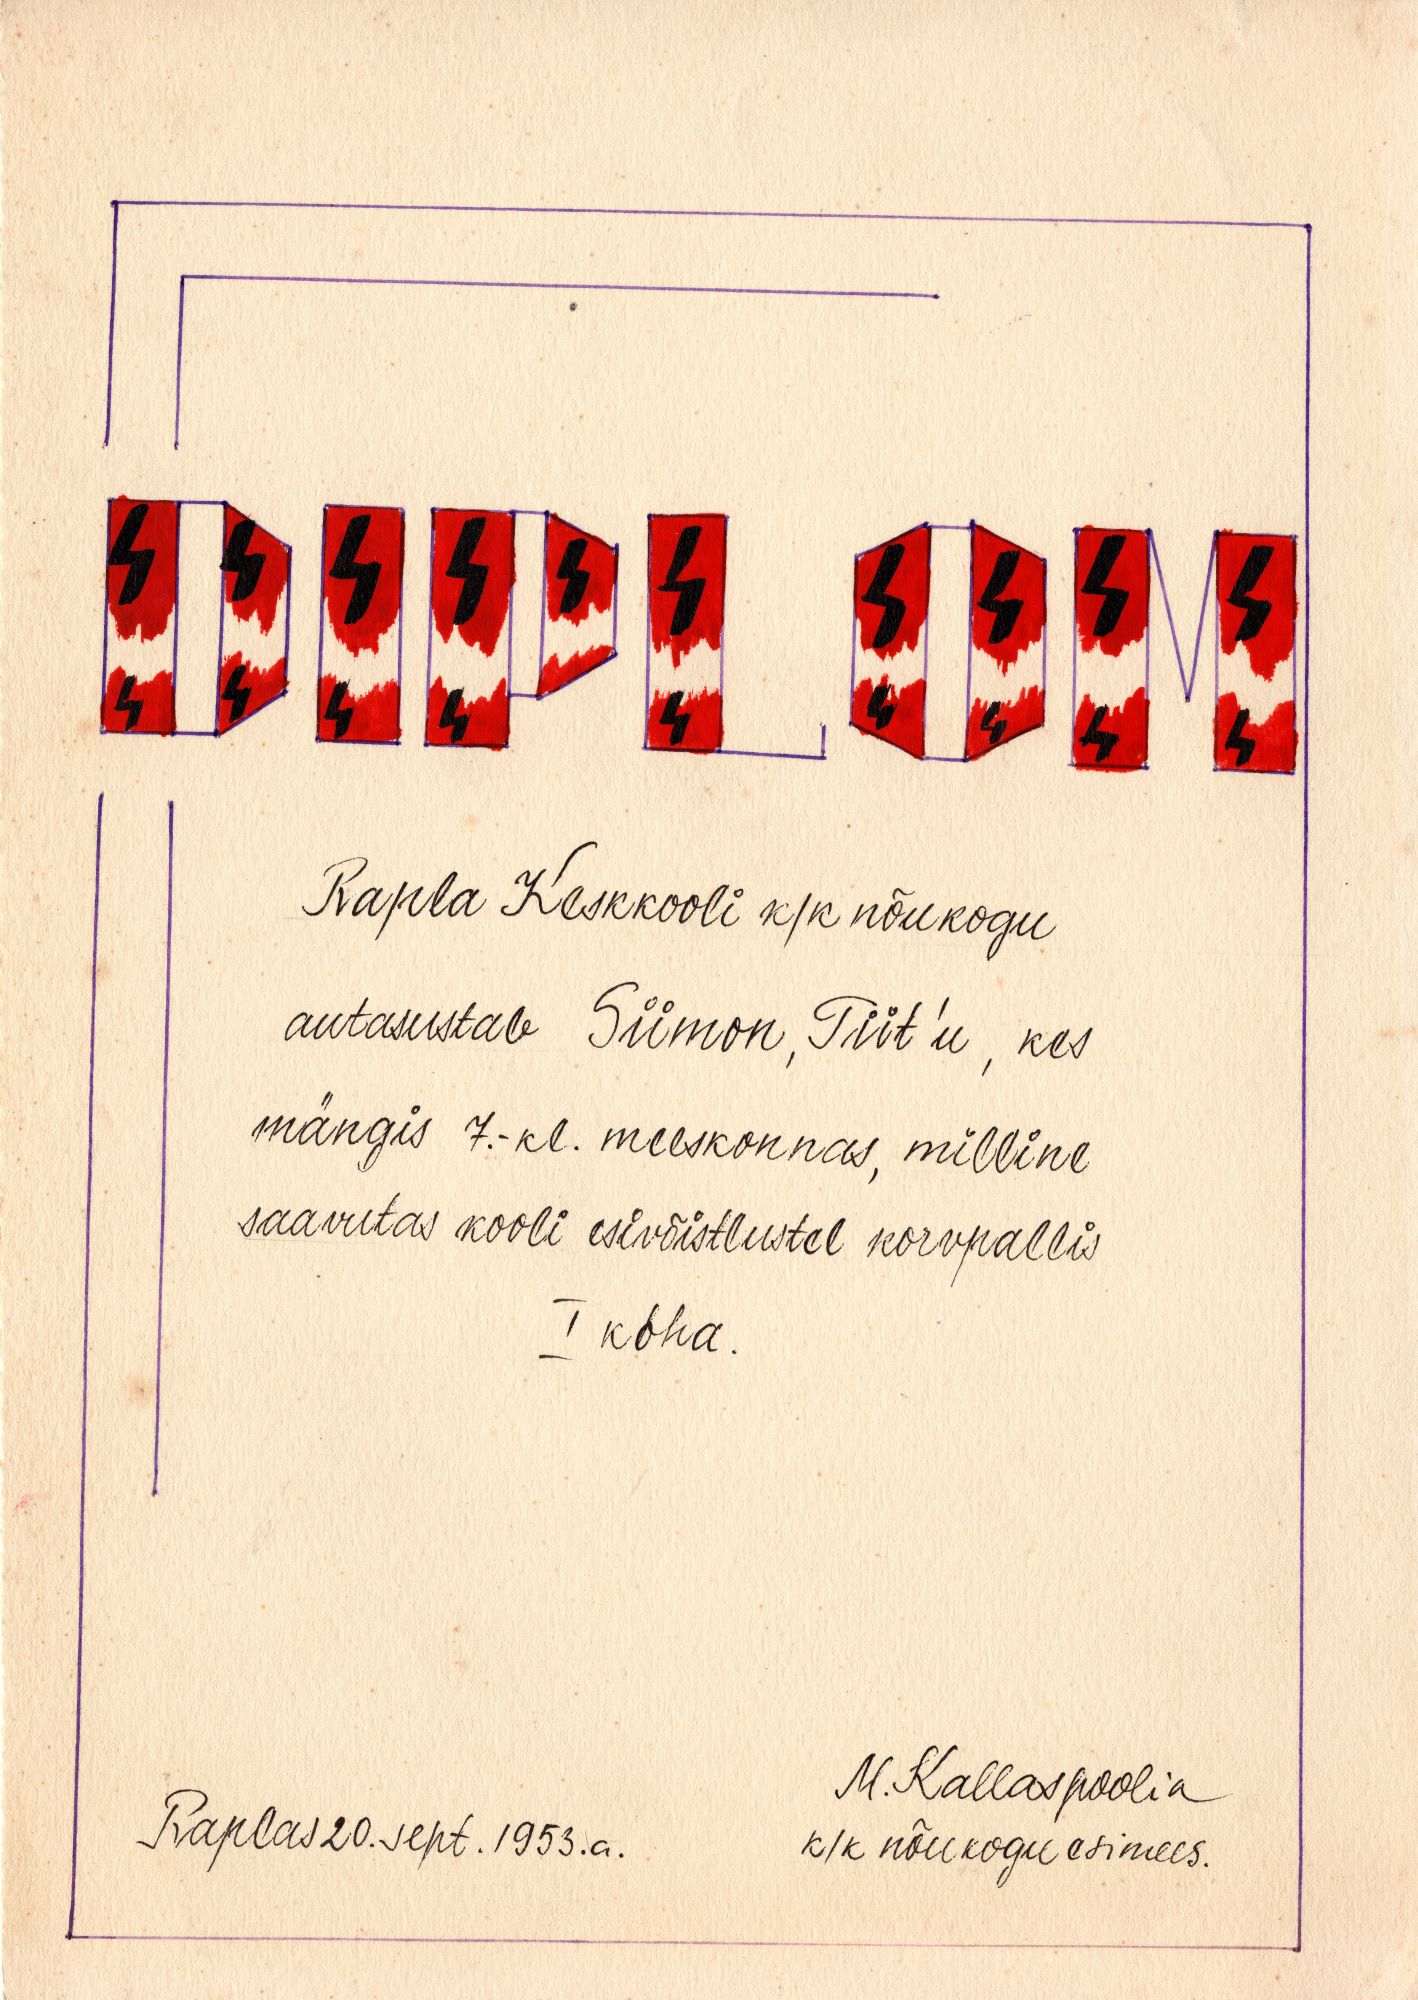 DIPLOM
Rapla Keskkooli k/k nõukogu
autasustab Siimon, Tiit'u, kes
mängis 7.-kl. meeskonnas, milline
saavutas kooli esivõistlustel korvpallis
I koha.
M. Kallaspoolia
Raplas 20. sept. 1953.a.
k/k nõukogu esimees.